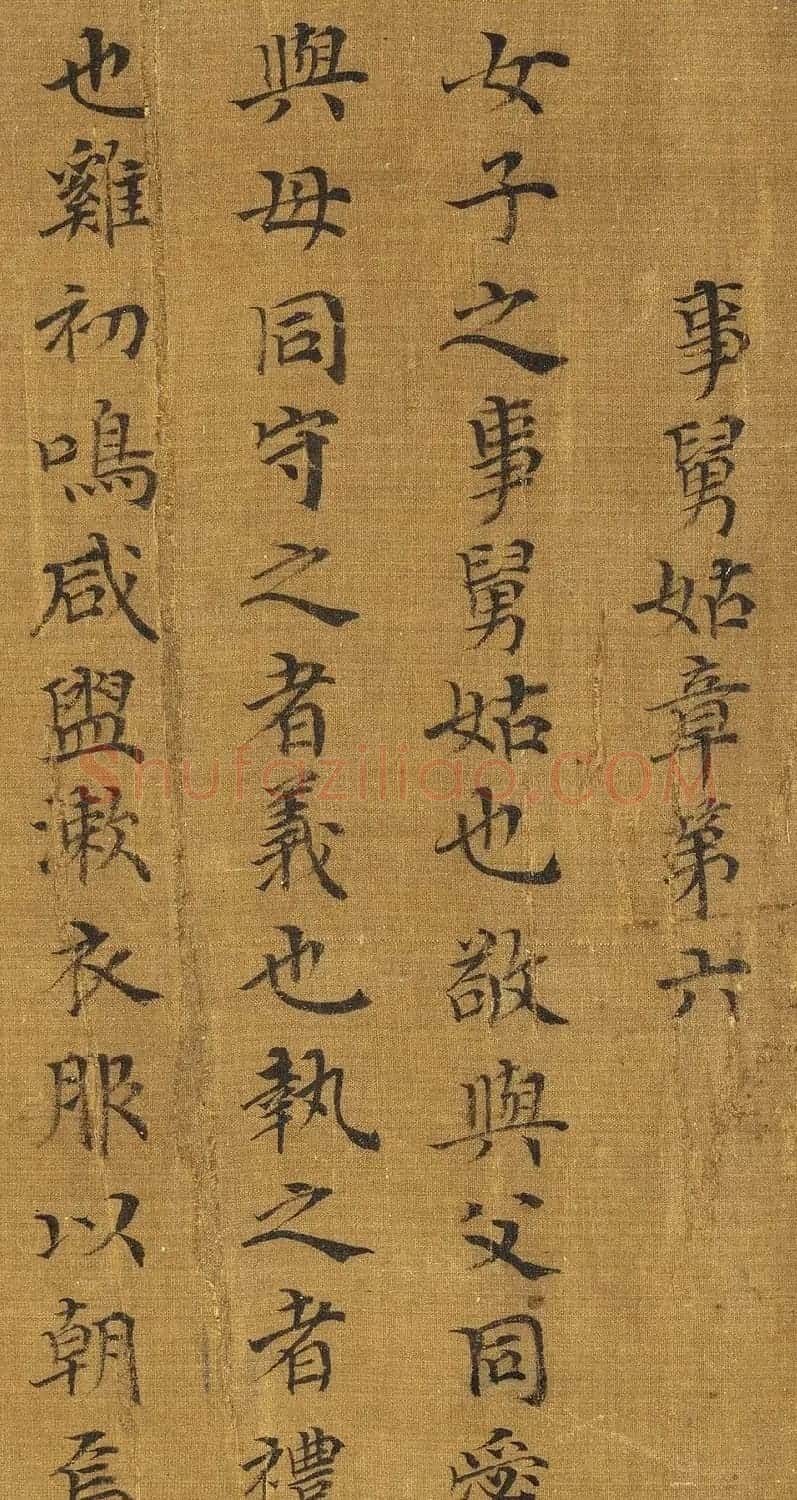 事舅姑章第六
女子之事舅姑也敬與父同愛
與母同守之者義也執之者禮
也雞初鳴咸盥漱衣服以朝焉
Shufaziliao.COM